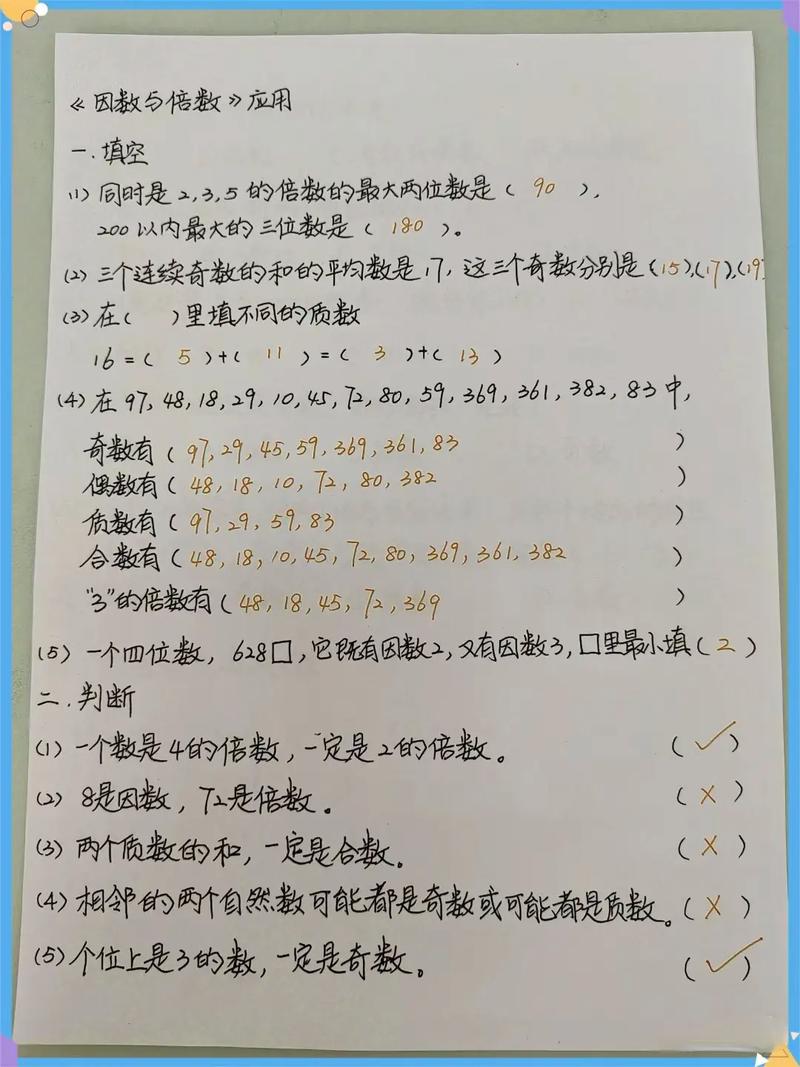 《因数与倍数》应用
一.填空
(1) 同时是2,3,5的倍数的最大两位数是( 90 ),
200以内最大的三位数是( 180 )。
(2) 三个连续奇数的和的平均数是17, 这三个奇数分别是(15),(17),(19)
(3) 在( )里填不同的质数
16=( 5 )+( 11 )=( 3 )+( 13 )
(4) 在97,48,18,29,10,45,72,80,59,369,361,382,83中,
奇数有( 97,29,45,59,369,361,83 )
偶数有( 48,18,10,72,80,382 )
质数有( 97,29,59,83 )
合数有( 48,18,10,45,72,80,369,361,382 )
"3"的倍数有( 48,18,45,72,369 )
(5) 一个四位数, 628□,它既有因数2,又有因数3,□里最小填( 2 )
二.判断
(1) 一个数是4的倍数,一定是2的倍数。 ( ✓ )
(2) 8是因数, 72是倍数。 ( × )
(3) 两个质数的和,一定是合数。 ( × )
(4) 相邻的两个自然数可能都是奇数或可能都是质数。( × )
(5) 个位上是3的数,一定是奇数。 ( ✓ )